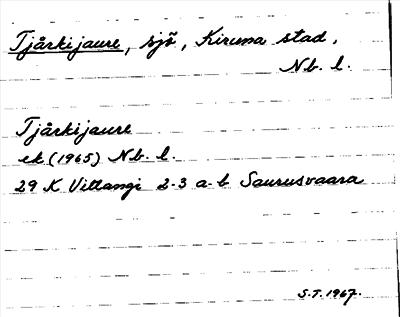 Tjårkijaure, sjö, Kiruna stad,
Nb. l.
Tjårkijaure
ek (1965) Nb. l.
29 K Vittangi 2-3 a-b Saurusvaara
S.T. 1967.